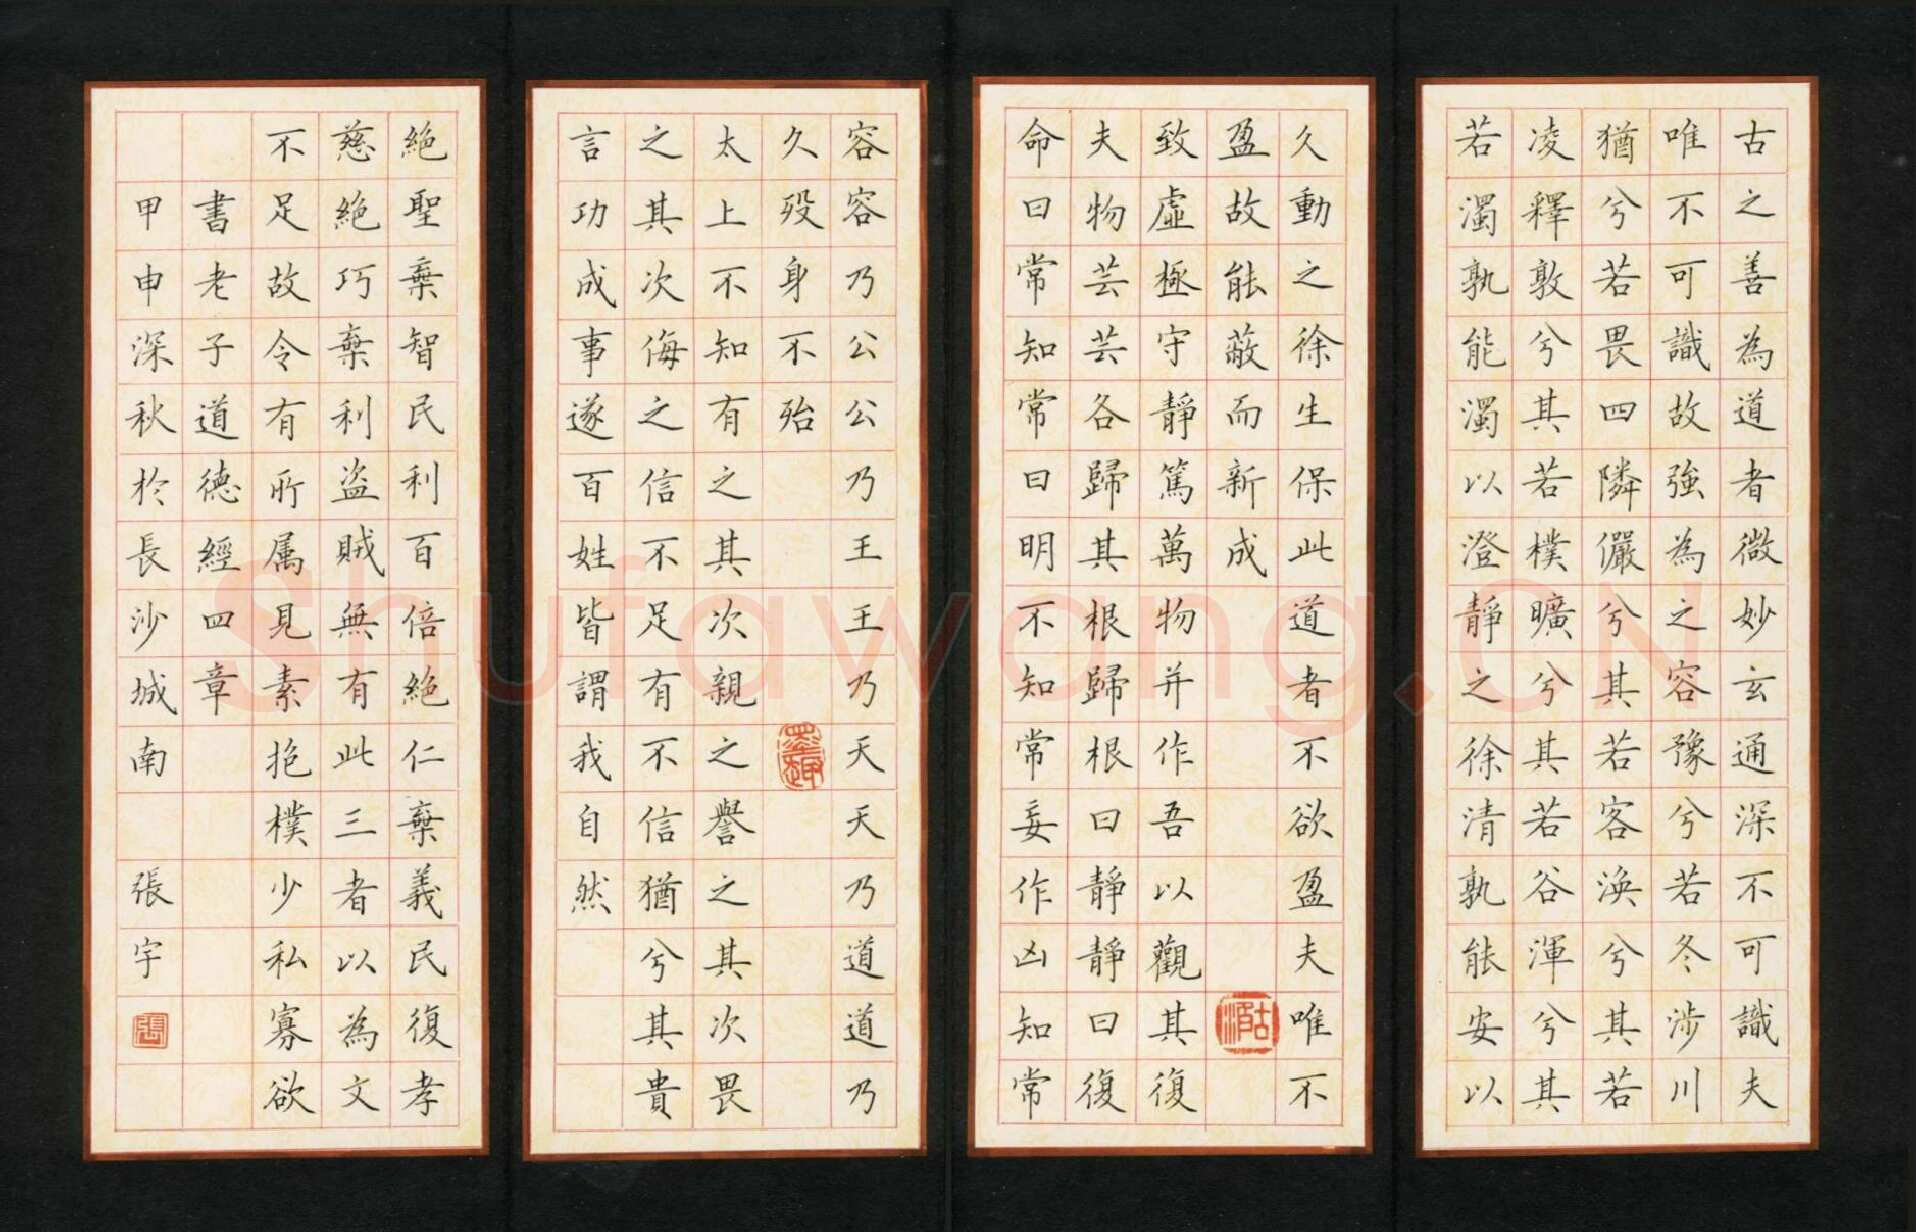 古之善為道者微妙玄通深不可識夫
唯不可識故強為之容豫兮若冬涉川
猶兮若畏四隣儼兮其若客渙兮其若
凌釋敦兮其若樸曠兮其若谷渾兮其
若濁孰能濁以澄靜之徐清孰能安以
久動之徐生保此道者不欲盈夫唯不
盈故能蔽而新成
致虛極守靜篤萬物并作吾以觀其復
夫物芸芸各歸其根歸根曰靜靜曰復
命曰常知常曰明不知常妄作凶知常
容容乃公公乃王王乃天天乃道道乃
久殁身不殆
太上不知有之其次親之譽之其次畏
之其次侮之信不足有不信猶兮其貴
言功成事遂百姓皆謂我自然
絕聖棄智民利百倍絕仁棄義民復孝
慈絕巧棄利盜賊無有此三者以為文
不足故令有所属見素抱樸少私寡欲
書老子道德經四章
甲申深秋於長沙城南 張宇
張
Shufawang.CN